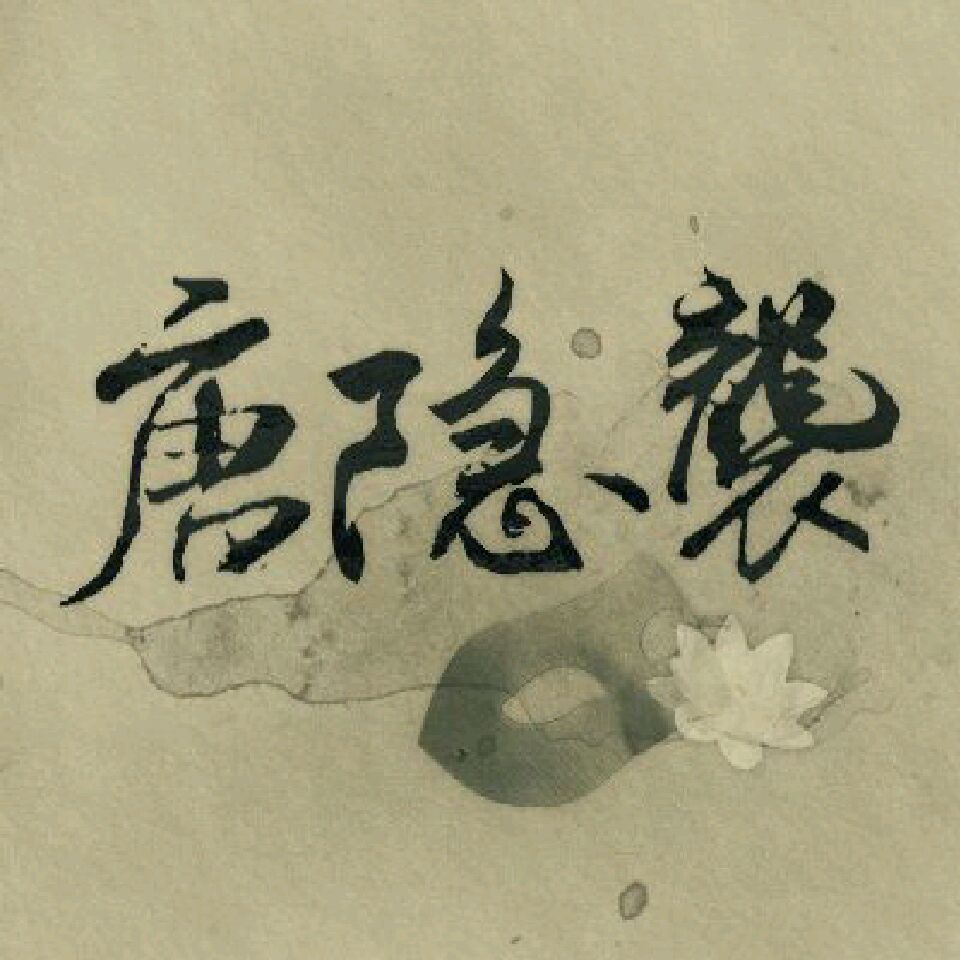 唐隐襲